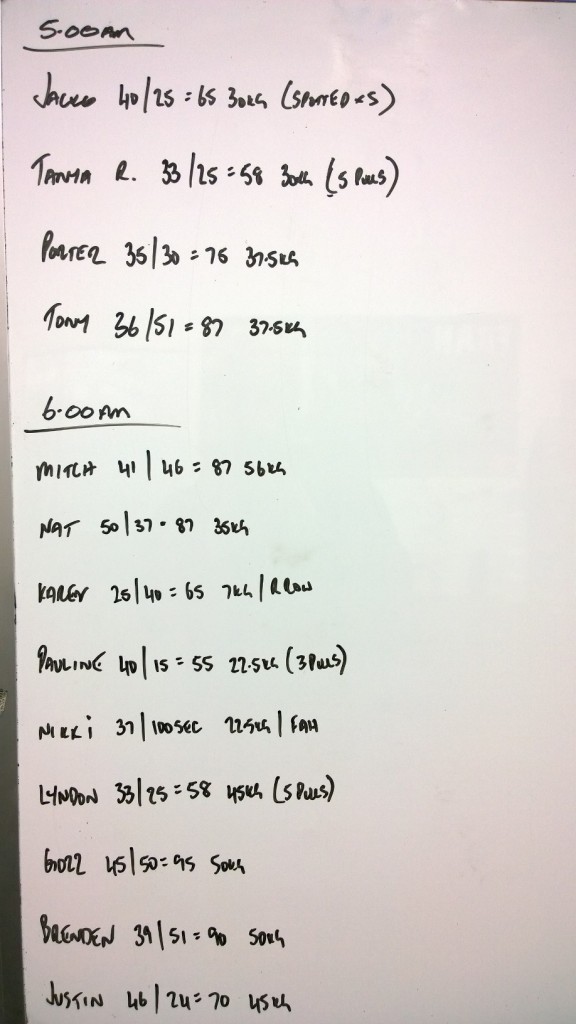 5.00AM
JACKO 40/25 = 65 30KG (SPOTTED x 5)
TANYA R. 33/25 = 58 30KG (5 PULLS)
PORTER 35/30 = 75 37.5KG
TONY 36/51 = 87 37.5KG
6.00AM
MITCH 41/46 = 87 56KG
NAT 50/37 = 87 35KG
KAREN 25/40 = 65 7KG/R ROW
PAULINE 40/15 = 55 22.5KG (3 PULLS)
NIKKI 37/100SEC 22.5KG/FAH
LYNDON 33/25 = 58 45KG (5 PULLS)
GOZZ 45/50 = 95 50KG
BRENDEN 39/51 = 90 50KG
JUSTIN 46/24 = 70 45KG